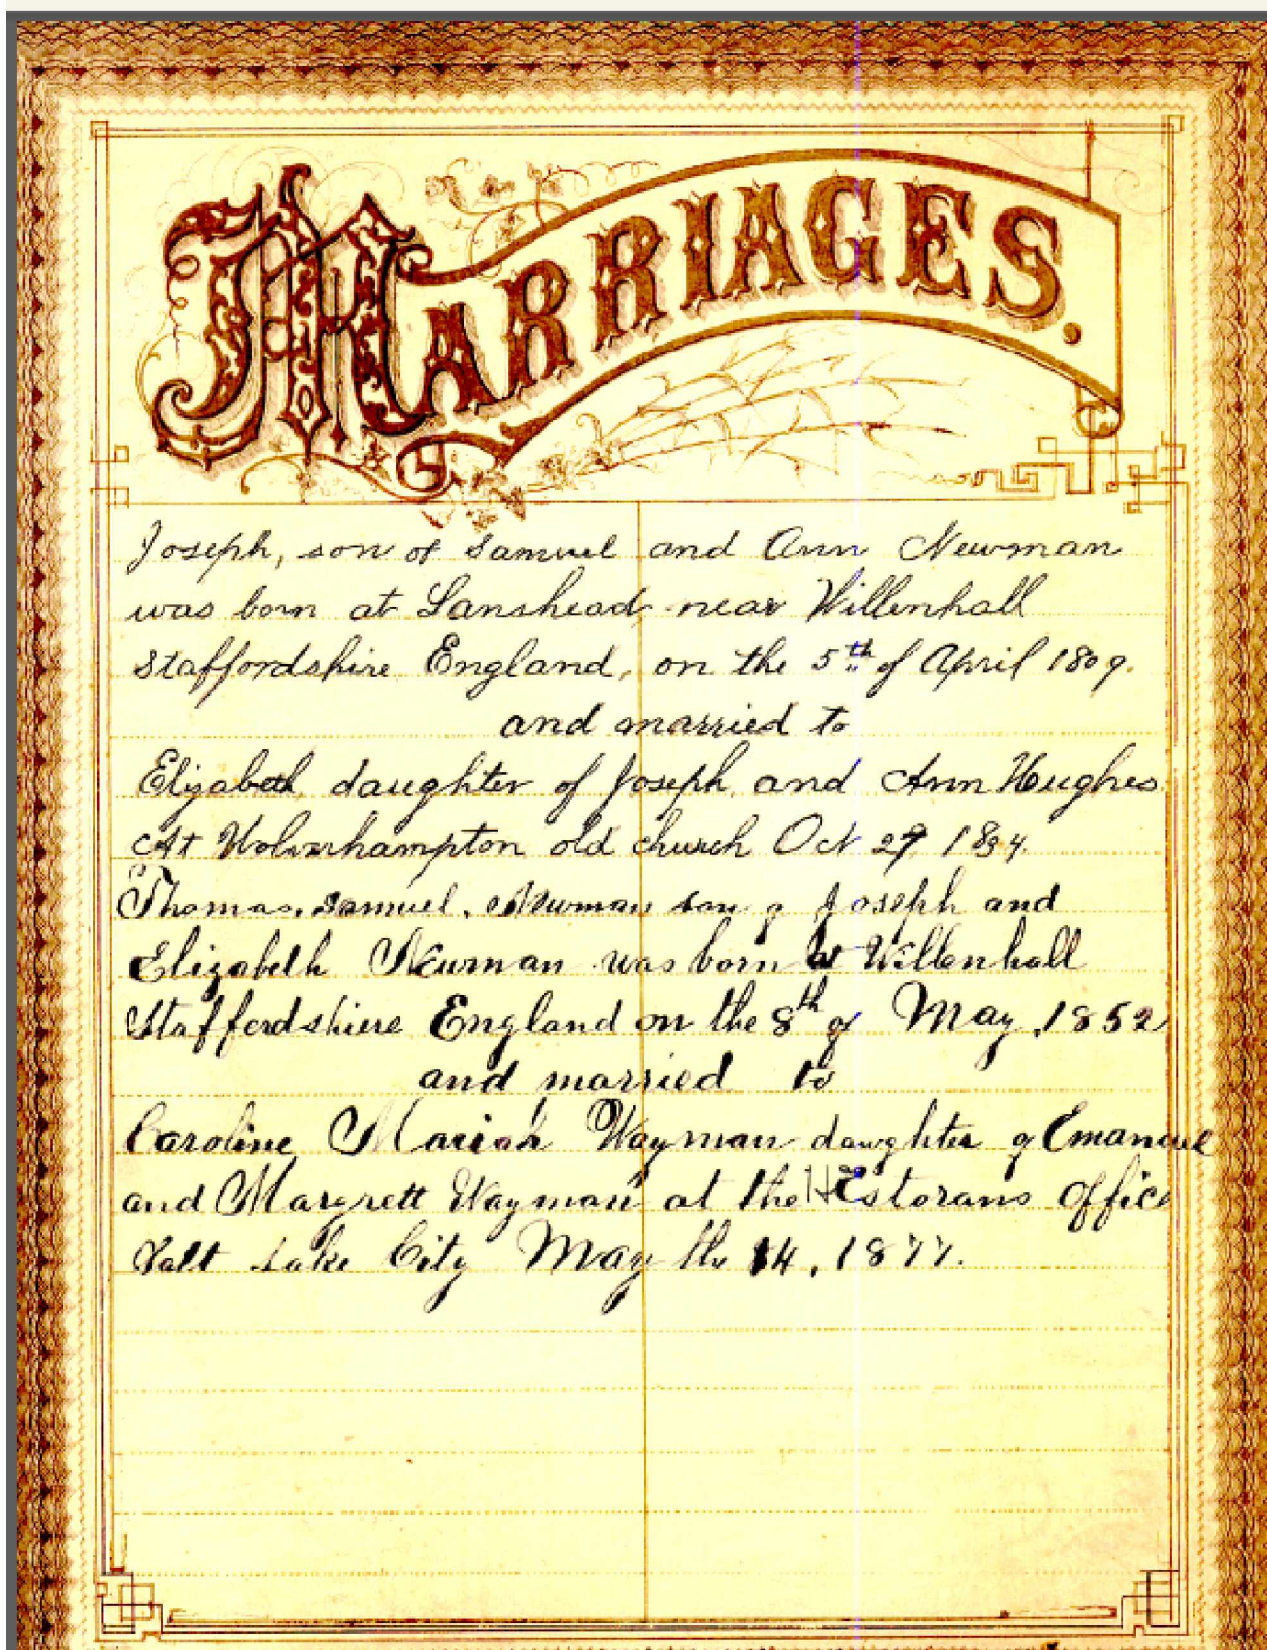 MARRIAGES.
Joseph, son of Samuel and Ann Newman
was born at Lanshead near Willenhall
Staffordshire England, on the 5th of April 1809.
and married to
Elizabeth daughter of Joseph and Ann Hughes
At Wolverhampton old church Oct 27 1834.
Thomas, Samuel, Newman son of Joseph and
Elizabeth Newman was born at Willenhall
Staffordshiere England on the 8th of May, 1852
and married to
Caroline Mariah Wayman daughter of Emanuel
and Margrett Wayman at the Office
Salt Lake City May the 14, 1877.